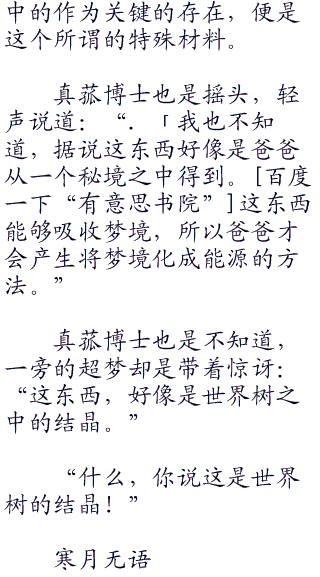 中的作为关键的存在，便是
这个所谓的特殊材料。
真菰博士也是摇头，轻
声说道：“．「我也不知
道，据说这东西好像是爸爸
从一个秘境之中得到。[百度
一下“有意思书院”]这东西
能够吸收梦境，所以爸爸才
会产生将梦境化成能源的方
法。”
真菰博士也是不知道，
一旁的超梦却是带着惊讶：
“这东西，好像是世界树之
中的结晶。”
“什么，你说这是世界
树的结晶！”
寒月无语